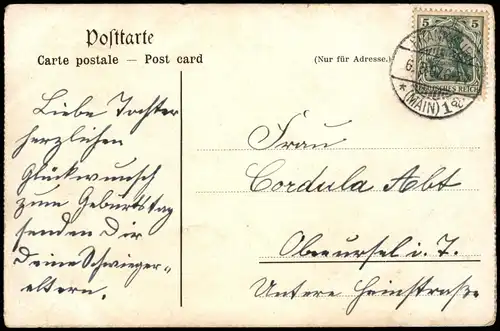 Postkarte
Carte postale — Post card
(Nur für Adresse.)
5 5
DEUTSCHES REICH
* (MAIN) 1
Liebe Tochter
herzlichen
Glückwunsch
zum Geburtstag
senden Dir
Deine Schwieger-
eltern.
Frau
Cordula Abt
Oberursel i. T.
Untere Hainstraße